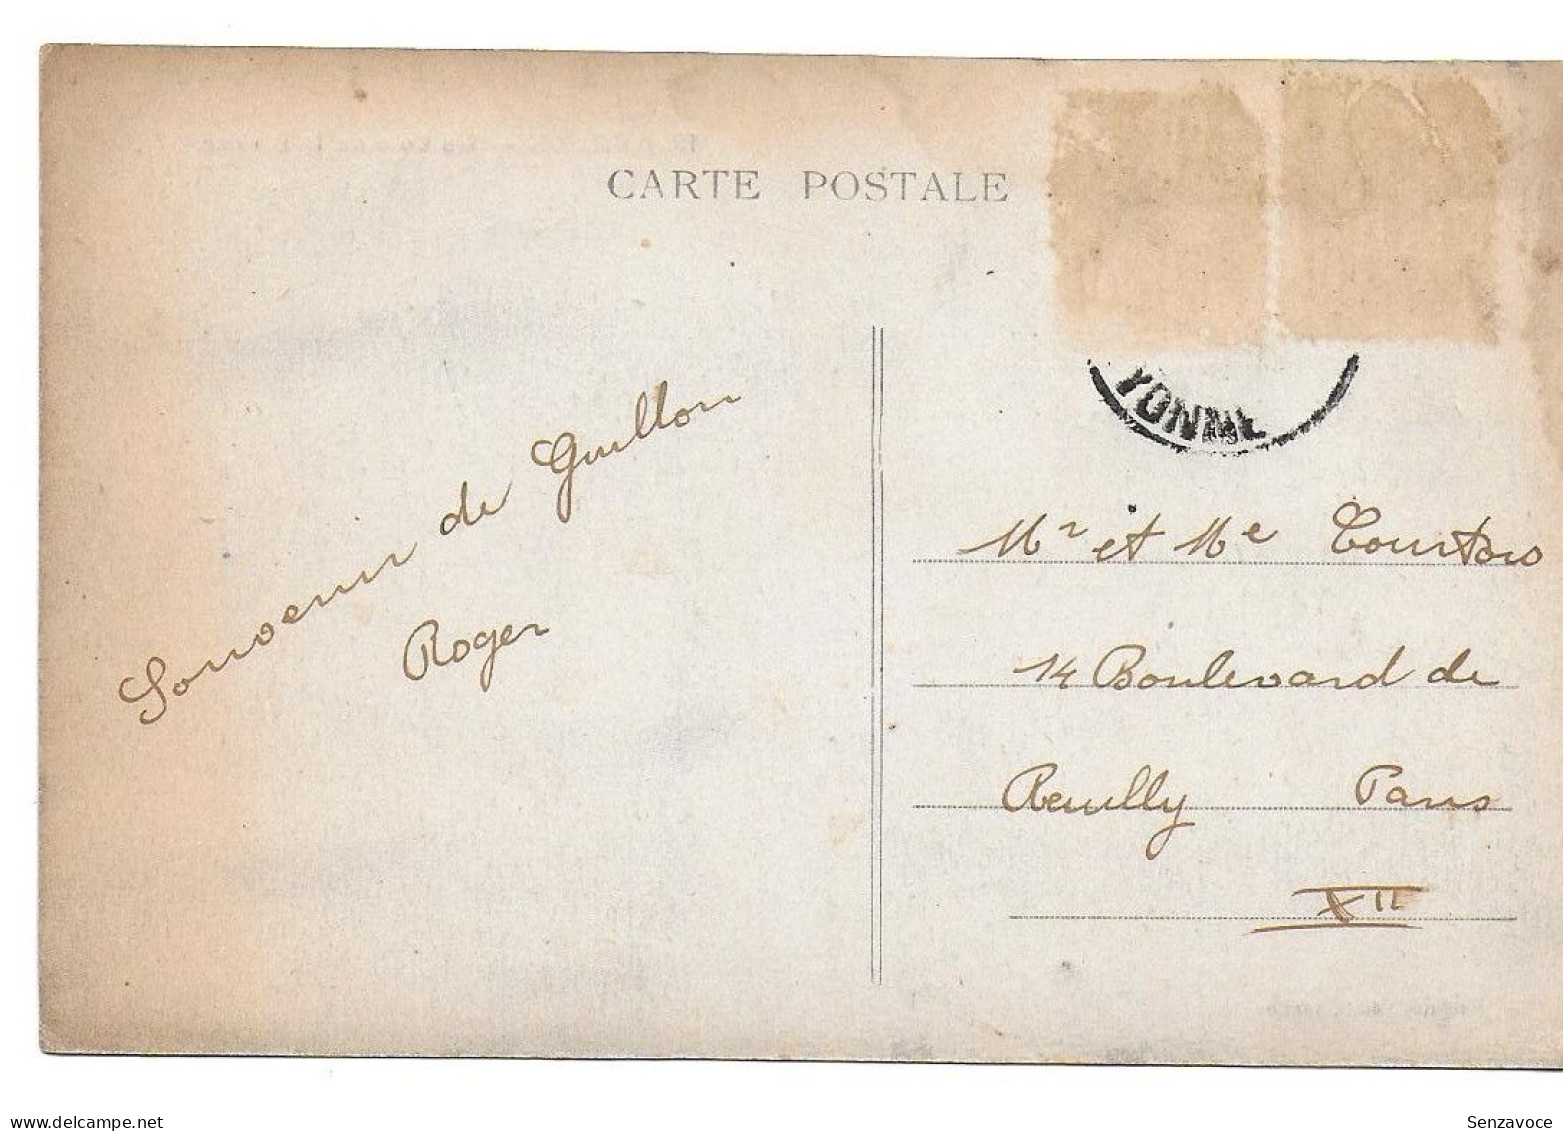 CARTE POSTALE
YONNE
Souvenir de Guillon
Roger
Mr et Me Tourtois
14 Boulevard de
Reuilly Paris
XII
www.delcampe.net
Senzavoce